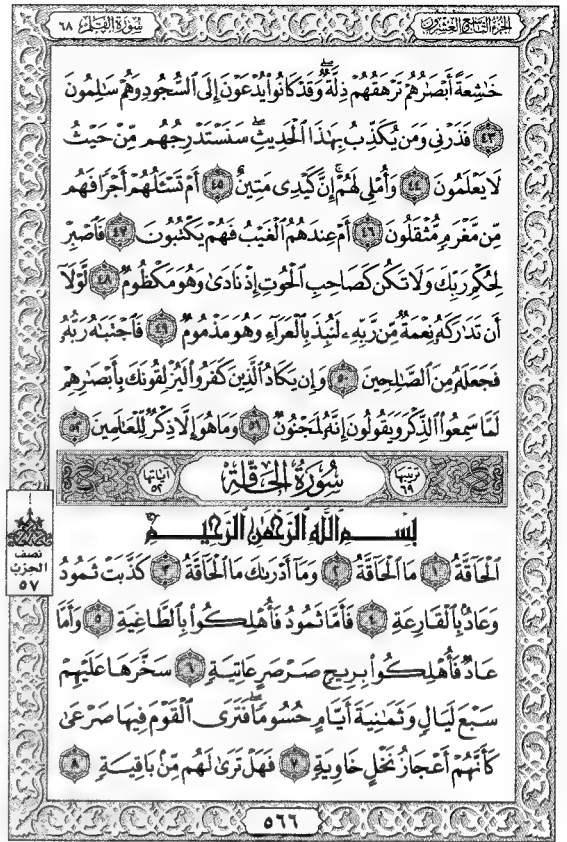 سورة القلم ٦٨
الجزء التاسع والعشرون
خَٰشِعَةً أَبْصَٰرُهُمْ تَرْهَقُهُمْ ذِلَّةٌ ۖ وَقَدْ كَانُوا۟ يُدْعَوْنَ إِلَى ٱلسُّجُودِ وَهُمْ سَٰلِمُونَ
٤٣ فَذَرْنِى وَمَن يُكَذِّبُ بِهَٰذَا ٱلْحَدِيثِ ۖ سَنَسْتَدْرِجُهُم مِّنْ حَيْثُ
لَا يَعْلَمُونَ ٤٤ وَأُمْلِى لَهُمْ ۚ إِنَّ كَيْدِى مَتِينٌ ٤٥ أَمْ تَسْـَٔلُهُمْ أَجْرًا فَهُم
مِّن مَّغْرَمٍ مُّثْقَلُونَ ٤٦ أَمْ عِندَهُمُ ٱلْغَيْبُ فَهُمْ يَكْتُبُونَ ٤٧ فَٱصْبِرْ
لِحُكْمِ رَبِّكَ وَلَا تَكُن كَصَاحِبِ ٱلْحُوتِ إِذْ نَادَىٰ وَهُوَ مَكْظُومٌ ٤٨ لَّوْلَآ
أَن تَدَٰرَكَهُۥ نِعْمَةٌ مِّن رَّبِّهِۦ لَنُبِذَ بِٱلْعَرَآءِ وَهُوَ مَذْمُومٌ ٤٩ فَٱجْتَبَٰهُ رَبُّهُۥ
فَجَعَلَهُۥ مِنَ ٱلصَّٰلِحِينَ ٥٠ وَإِن يَكَادُ ٱلَّذِينَ كَفَرُوا۟ لَيُزْلِقُونَكَ بِأَبْصَٰرِهِمْ
لَمَّا سَمِعُوا۟ ٱلذِّكْرَ وَيَقُولُونَ إِنَّهُۥ لَمَجْنُونٌ ٥١ وَمَا هُوَ إِلَّا ذِكْرٌ لِّلْعَٰلَمِينَ ٥٢
ترتيبها ٦٩ سُورَةُ الحَاقَّةِ آياتها ٥٢
بِسْمِ ٱللَّهِ ٱلرَّحْمَٰنِ ٱلرَّحِيمِ
ٱلْحَآقَّةُ ١ مَا ٱلْحَآقَّةُ ٢ وَمَآ أَدْرَىٰكَ مَا ٱلْحَآقَّةُ ٣ كَذَّبَتْ ثَمُودُ
وَعَادٌۢ بِٱلْقَارِعَةِ ٤ فَأَمَّا ثَمُودُ فَأُهْلِكُوا۟ بِٱلطَّاغِيَةِ ٥ وَأَمَّا
عَادٌ فَأُهْلِكُوا۟ بِرِيحٍ صَرْصَرٍ عَاتِيَةٍ ٦ سَخَّرَهَا عَلَيْهِمْ
سَبْعَ لَيَالٍ وَثَمَٰنِيَةَ أَيَّامٍ حُسُومًا ۖ فَتَرَى ٱلْقَوْمَ فِيهَا صَرْعَىٰ
كَأَنَّهُمْ أَعْجَازُ نَخْلٍ خَاوِيَةٍ ٧ فَهَلْ تَرَىٰ لَهُم مِّنۢ بَاقِيَةٍ ٨
نصف
الحزب
٥٧
٥٦٦